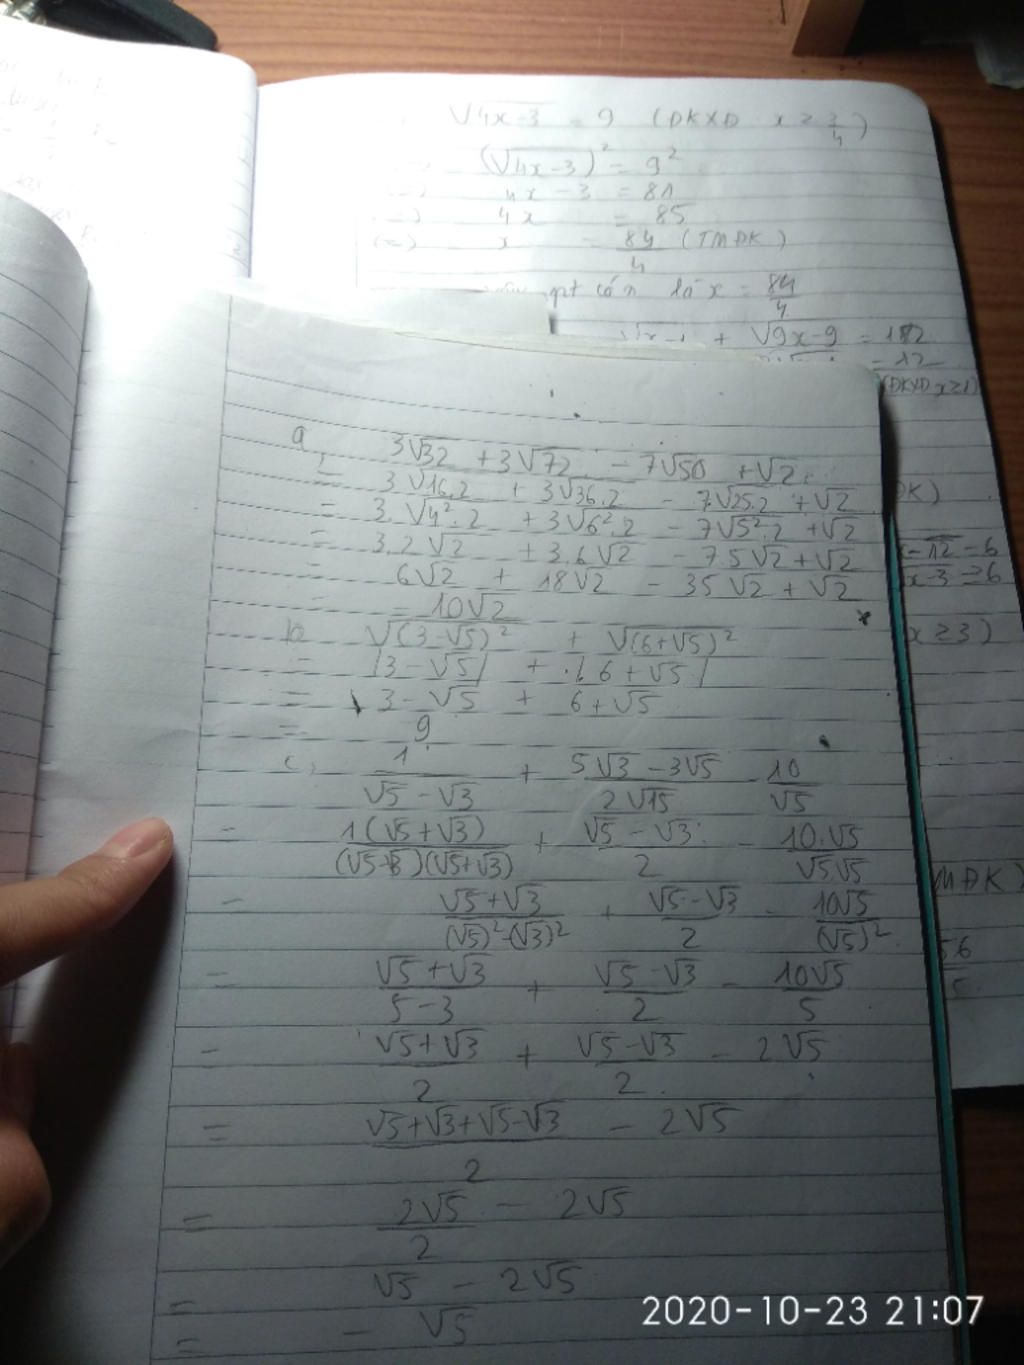 √4x-3 = 9 (ĐKXĐ x ≥ 3/4)
(√4x-3)² = 9²
4x - 3 = 81
4x = 85
(=) x = 84/4 (TMĐK)
pt có n là x = 84/4
√x-1 + √9x-9 = 12
= 12
(ĐKXĐ x≥1)
ĐK)
x-12 = 6
x-3 = 6
x ≥ 3)
MĐK)
56
5
a, 3√32 + 3√72 - 7√50 + √2
= 3√16.2 + 3√36.2 - 7√25.2 + √2
= 3.√4².2 + 3√6².2 - 7√5².2 + √2
= 3.2√2 + 3.6√2 - 7.5√2 + √2
= 6√2 + 18√2 - 35√2 + √2
= 10√2
b √(3-√5)² + √(6+√5)²
= |3-√5| + |6+√5|
= 3-√5 + 6+√5
= 9
c, 1/(√5-√3) + (5√3-3√5)/(2√15) - 10/√5
= 1(√5+√3)/((√5-√3)(√5+√3)) + (√5-√3)/2 - 10.√5/(√5.√5)
= (√5+√3)/((√5)²-(√3)²) + (√5-√3)/2 - 10√5/(√5)²
= (√5+√3)/(5-3) + (√5-√3)/2 - 10√5/5
= (√5+√3)/2 + (√5-√3)/2 - 2√5
= (√5+√3+√5-√3)/2 - 2√5
= 2√5/2 - 2√5
= √5 - 2√5
= - √5
2020-10-23 21:07